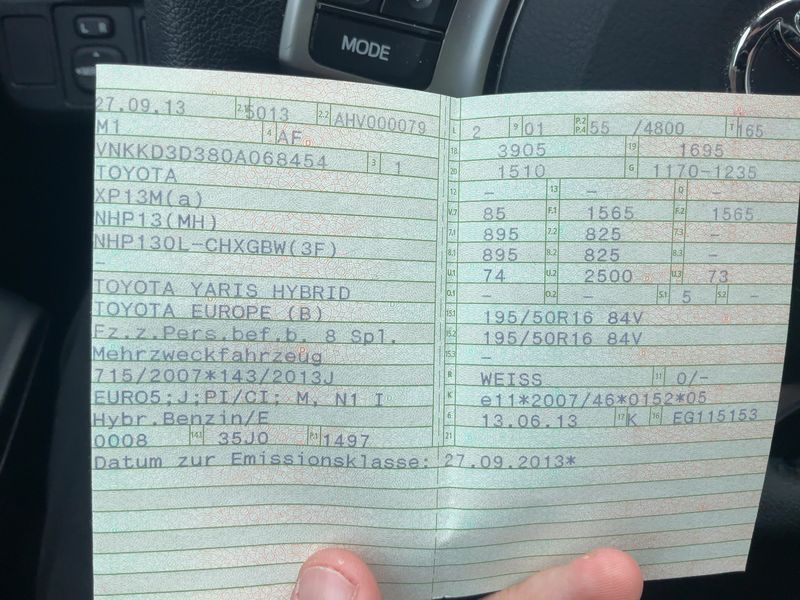 MODE
27.09.13 2.1 5013 2.2 AHV000079
M1 4 AF
VNKKD3D380A068454 3 1
TOYOTA
XP13M(a)
NHP13(MH)
NHP130L-CHXGBW(3F)
-
TOYOTA YARIS HYBRID
TOYOTA EUROPE (B)
Fz.z.Pers.bef.b. 8 Spl.
Mehrzweckfahrzeug
715/2007*143/2013J
EURO5;J;PI/CI; M, N1 I
Hybr.Benzin/E
0008 14.1 35J0 P.1 1497
Datum zur Emissionsklasse: 27.09.2013*
L 2 9 01 P.2 P.4 55 /4800 T 165
18 3905 19 1695
20 1510 G 1170-1235
12 - 13 - Q -
V.7 85 F.1 1565 F.2 1565
7.1 895 7.2 825 7.3 -
8.1 895 8.2 825 8.3 -
U.1 74 U.2 2500 U.3 73
O.1 - O.2 - S.1 5 S.2 -
15.1 195/50R16 84V
15.2 195/50R16 84V
15.3 -
R WEISS 11 0/-
K e11*2007/46*0152*05
6 13.06.13 17 K 16 EG115153
21